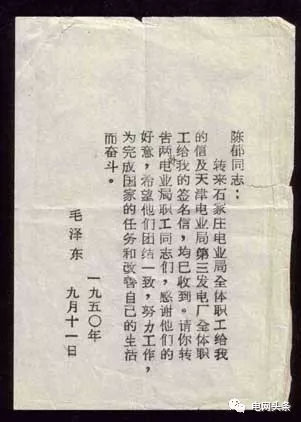 陈郁同志：
转来石家庄电业局全体职工给我
的信及天津电业局第三发电厂全体职
工给我的签名信，均已收到。请你转
告两电业局职工同志们，感谢他们的
好意，希望他们团结一致，努力工作，
为完成国家的任务和改善自己的生活
而奋斗。
毛泽东
一九五〇年
九月十一日
电网头条